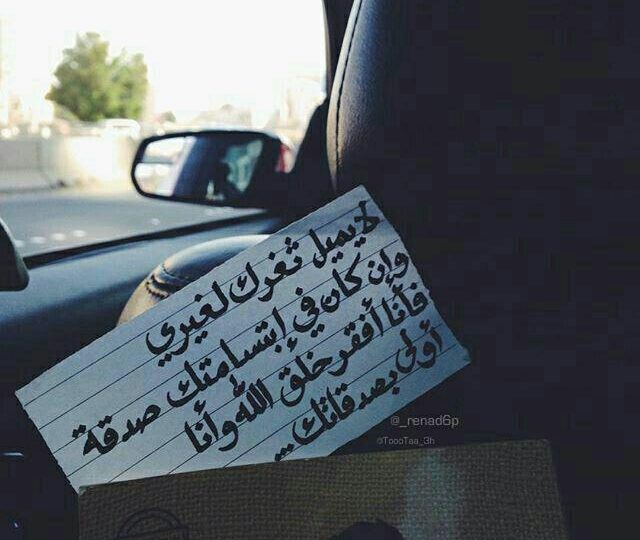 لا يميل ثغرك لغيري
وإن كان في إبتسامتك صدقة
فأنا أفقر خلق الله وأنا
أولى بصدقاتك...
@_renad6p
@ToooTaa_3h